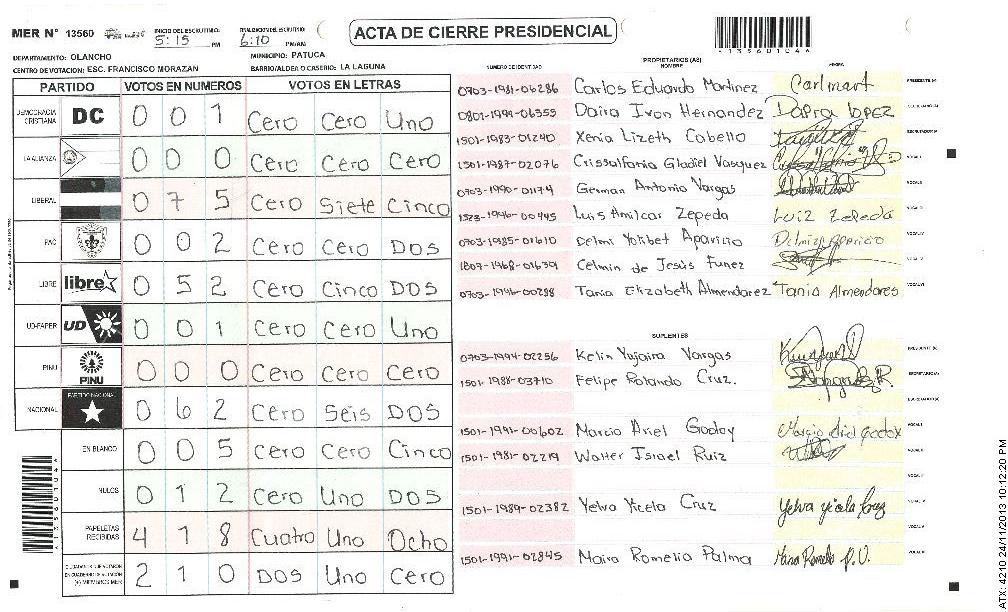 MER N° 13560 INICIO DEL ESCRUTINIO 5:15 PM FINALIZACION DEL ESCRUTINIO 6:10 PM/AM
ACTA DE CIERRE PRESIDENCIAL
DEPARTAMENTO: OLANCHO MUNICIPIO: PATUCA
CENTRO DE VOTACION: ESC. FRANCISCO MORAZAN BARRIO/ALDEA O CASERIO: LA LAGUNA
PARTIDO VOTOS EN NUMEROS VOTOS EN LETRAS
DEMOCRACIA CRISTIANA DC 0 0 1 Cero Cero Uno
LA ALIANZA 0 0 0 Cero Cero Cero
LIBERAL 0 7 5 Cero Siete Cinco
PAC 0 0 2 Cero Cero Dos
LIBRE libre 0 5 2 Cero Cinco Dos
UD-FAPER UD 0 0 1 Cero Cero Uno
PINU PINU 0 0 0 Cero Cero Cero
NACIONAL PARTIDO NACIONAL 0 6 2 Cero Seis Dos
EN BLANCO 0 0 5 Cero Cero Cinco
NULOS 0 1 2 Cero Uno Dos
PAPELETAS RECIBIDAS 4 1 8 Cuatro Uno Ocho
CIUDADANOS QUE VOTARON EN CUADERNO DE VOTACION (+) MIEMBROS MER 2 1 0 Dos Uno Cero
1 3 5 6 0 1 0 4 6
PROPIETARIOS (AS)
NUMERO DE IDENTIDAD NOMBRE FIRMA
0703-1981-06286 Carlos Eduardo Martinez Carlmart PRESIDENTE (A)
0801-1991-06355 Daira Ivon Hernandez SECRETARIO (A)
1501-1983-01240 Xenia Lizeth Cabello ESCRUTADOR (A)
1501-1987-02076 Crissalfonia Gladiel Vasquez VOCAL I
0703-1990-01174 German Antonio Vargas VOCAL II
1523-1996-00445 Luis Amilcar Zepeda Luiz Zepeda VOCAL III
0703-1985-01610 Delmi Yolibet Aparicio VOCAL IV
1807-1968-01639 Celmin de Jesús Funez VOCAL V
0703-1996-00288 Tania Elizabeth Almendarez Tania Almendares VOCAL VI
SUPLENTES
0703-1994-02256 Kelin Yujaira Vargas PRESIDENTE (A)
1501-1988-03710 Felipe Rolando Cruz. SECRETARIO (A)
ESCRUTADOR (A)
1501-1991-00602 Marcio Ariel Godoy VOCAL I
1501-1981-02219 Walter Israel Ruiz VOCAL II
VOCAL III
1501-1989-02382 Yelva Yicela Cruz Yelva yicela Cruz VOCAL IV
VOCAL V
1501-1991-02845 Maira Romelia Palma VOCAL VI
ATX: 4210 24/11/2013 10:12:20 PM